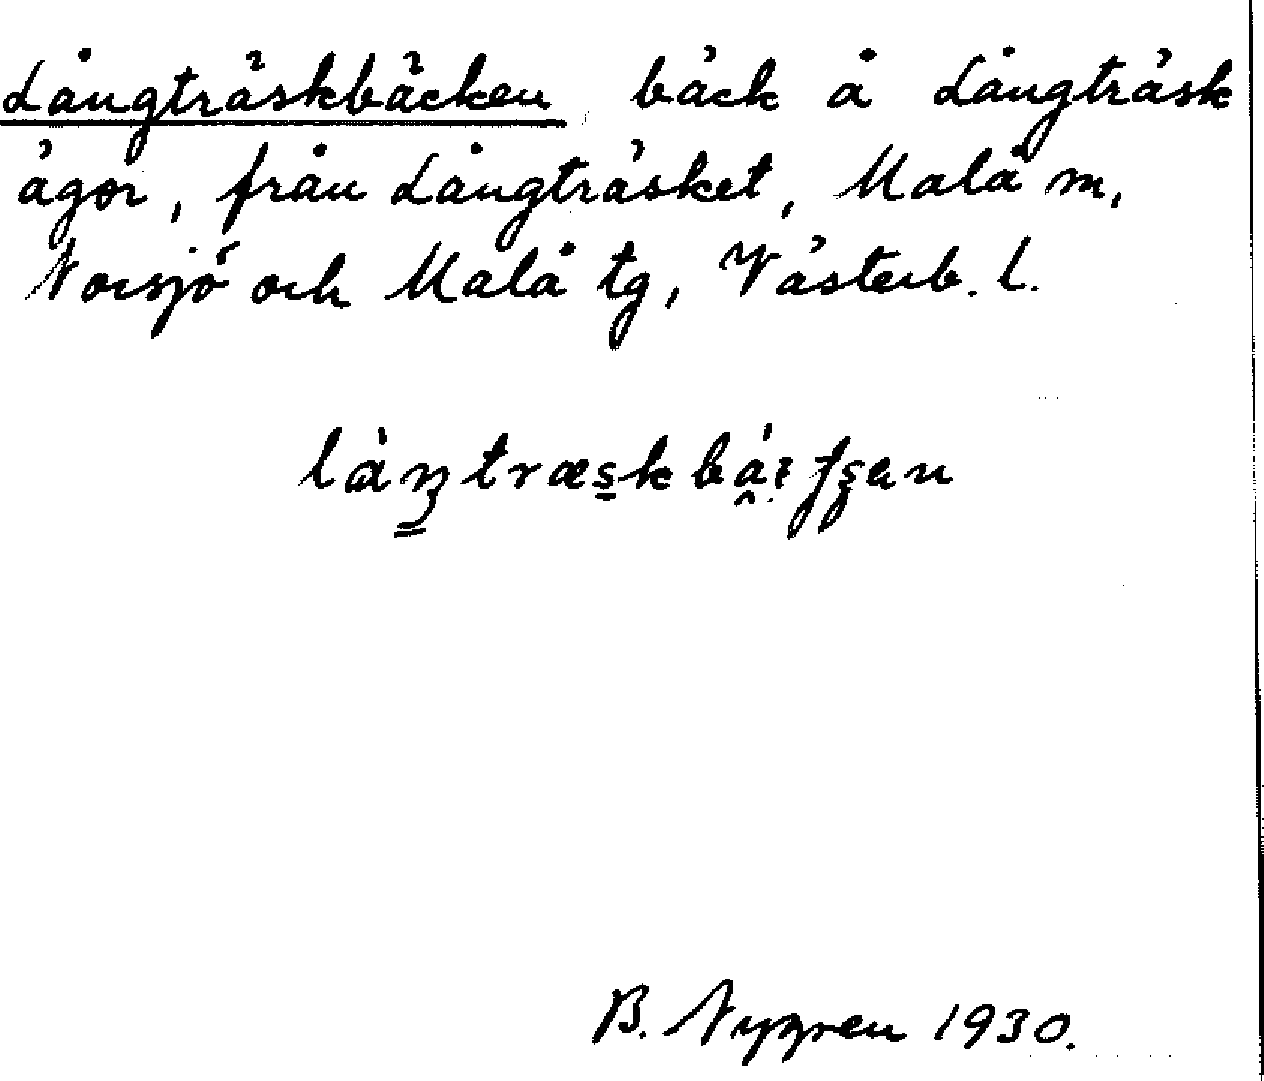 Långträskbäcken bäck å Långträsk
ägor, från Långträsket, Malå m,
Norsjö och Malå tg, Västerb. l.
B. Nygren 1930.